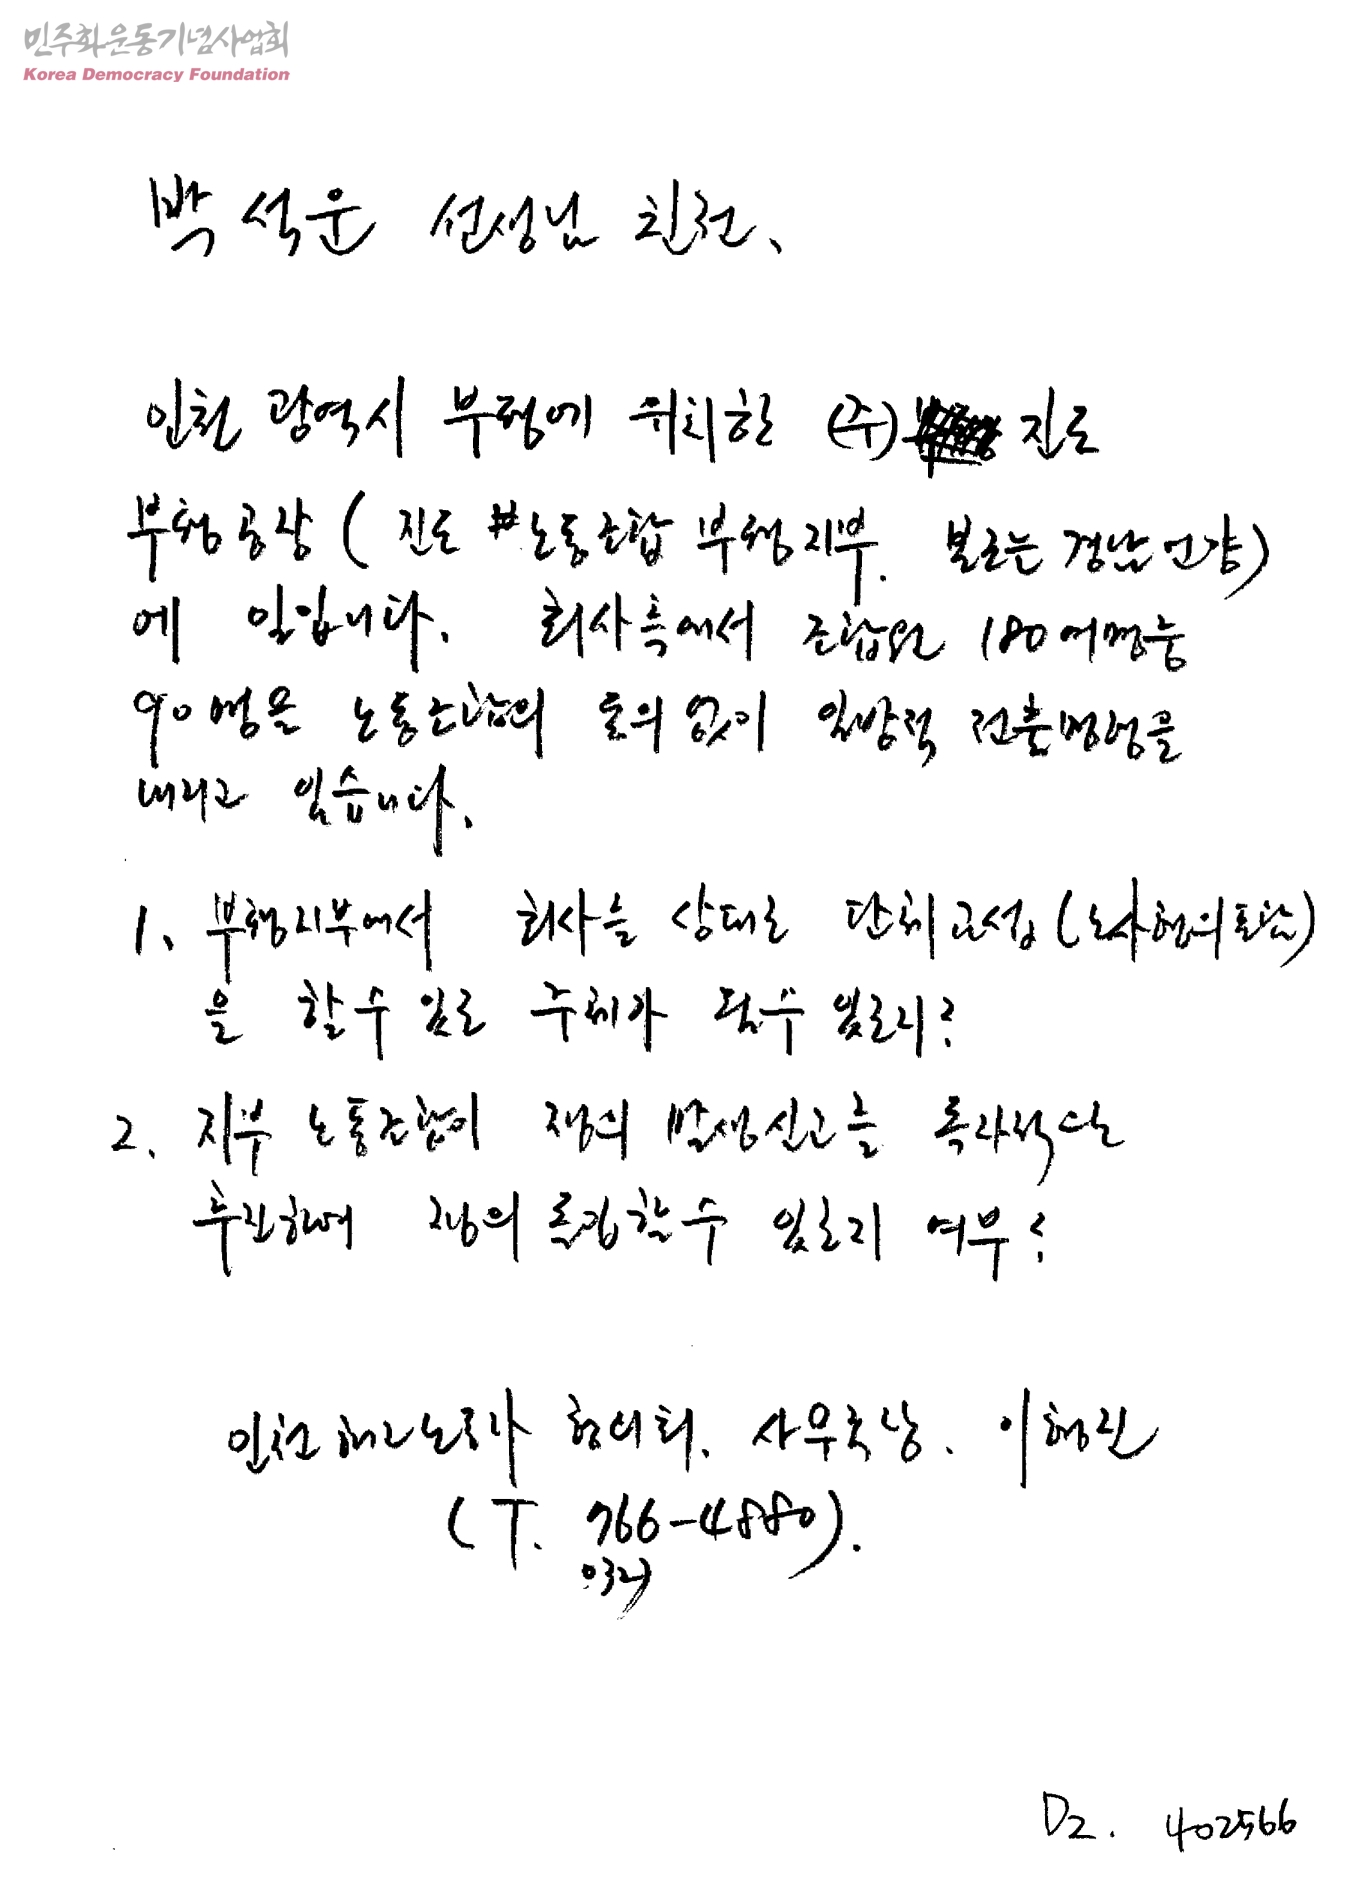 민주화운동기념사업회
Korea Democracy Foundation
박석운 선생님 친전.
인천 광역시 부평에 위치한 (주) 진로
부평공장 ( 진로 노동조합 부평지부.
에 일입니다. 회사측에서 조합원 180여명중
90명을 노동조합의 동의 없이 일방적 전출명령을
내리고 있습니다.
1. 부평지부에서 회사를 상대로 단체교섭 (노사협의포함)
을 할수 있는 주체가 될수 있는지?
2. 지부 노동조합이 쟁의 발생신고를 독자적으로
추진하여 쟁의 돌입할 수 있는지 여부?
인천해고노동자 협의회. 사무국장. 이형진
(T. 766-4880).
032)
D2. 402566